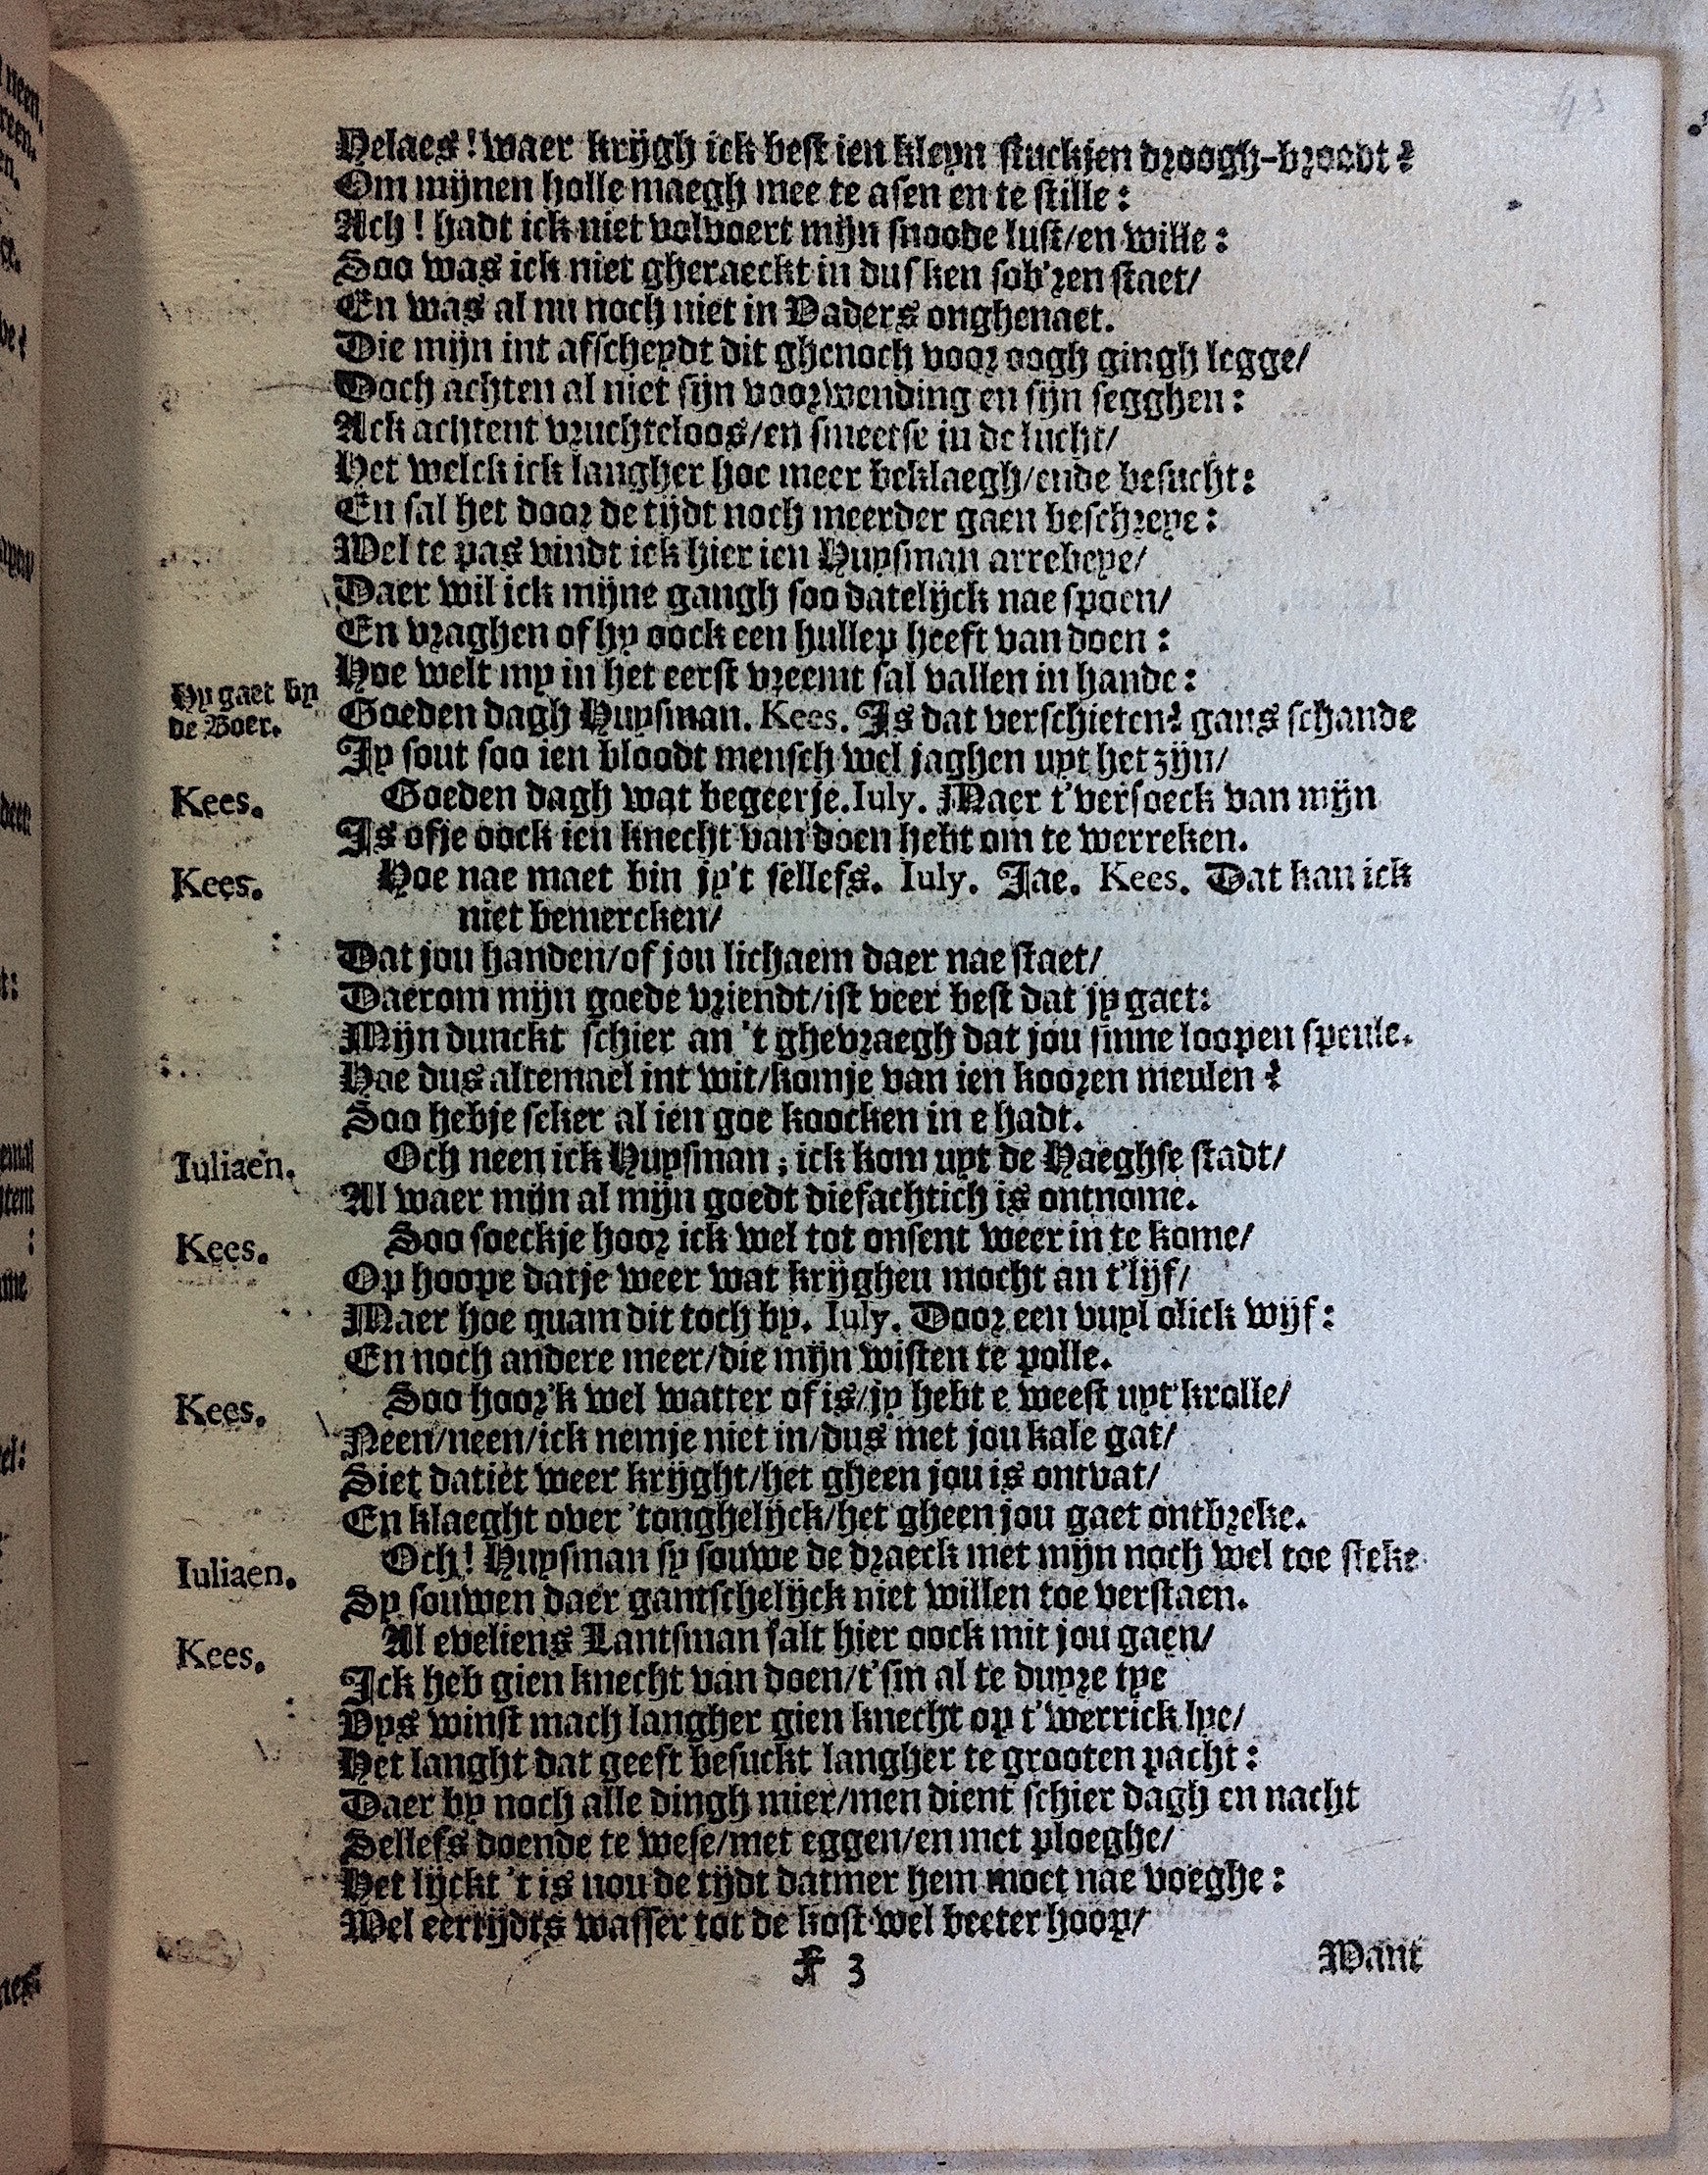 Helaes! waer krijgh ick best ien kleyn stuckjen droogh-broodt?
Om mijnen holle maegh mee te asen en te stille:
Ach! hadt ick niet volvoert mijn snoode lust/en wille:
Soo was ick niet gheraeckt in dusken sob'ren staet/
En was al nu noch niet in Vaders onghenaet.
Die mijn int afscheydt dit ghenoch voor oogh gingh legge/
Doch achten al niet sijn voorwending en sijn segghen:
Ack achtent vruchteloos/en smeetse in de lucht/
Het welck ick langher hoe meer beklaegh/ende besucht:
En sal het door de tijdt noch meerder gaen beschreye:
Wel te pas vindt ick hier ien Huysman arrebeye/
Daer wil ick mijne gangh soo datelijck nae spoen/
En vraghen of hy oock een hullep heeft van doen:
Hoe welt my in het eerst vreemt sal vallen in hande:
Hy gaet by de Boer.
Goeden dagh Huysman. Kees. Is dat verschieten? gans schande
Jy sout soo ien bloodt mensch wel jaghen uyt het zijn/
Kees. Goeden dagh wat begeerje. Iuly. Maer t'versoeck van mijn
Is ofje oock ien knecht van doen hebt om te werreken.
Kees. Hoe nae maet bin jy't sellefs. Iuly. Jae. Kees. Dat kan ick
niet bemercken/
Dat jou handen/of jou lichaem daer nae staet/
Daerom mijn goede vriendt/ist veer best dat jy gaet:
Mijn dunckt schier an 't ghevraegh dat jou sinne loopen speule.
Hoe dus altemael int wit/komje van ien kooren meulen?
Soo hebje seker al ien goe koocken in e hadt.
Iuliaen. Och neen ick Huysman; ick kom uyt de Haeghse stadt/
Al waer mijn al mijn goedt diefachtich is ontnome.
Kees. Soo soeckje hoor ick wel tot onsent weer in te kome/
Op hoope datje weer wat krijghen mocht an t'lijf/
Maer hoe quam dit toch by. Iuly. Door een vuyl olick wijf:
En noch andere meer/die mijn wisten te polle.
Kees. Soo hoor'k wel watter of is/jy hebt e weest uyt krolle/
Neen/neen/ick nemje niet in/dus met jou kale gat/
Siet datiet weer krijght/het gheen jou is ontvat/
En klaeght over 'tonghelijck/het gheen jou gaet ontbreke.
Iuliaen. Och! Huysman sy souwe de draeck met mijn noch wel toe steke
Sy souwen daer gantschelijck niet willen toe verstaen.
Kees. Al eveliens Lantsman salt hier oock mit jou gaen/
Ick heb gien knecht van doen/t'sin al te duyre tye
Uys winst mach langher gien knecht op t'werrick lye/
Het langht dat geeft besuckt langher te grooten pacht:
Daer by noch alle dingh mier/men dient schier dagh en nacht
Sellefs doende te wese/met eggen/en met ploeghe/
Het lijckt 't is nou de tijdt datmer hem moet nae voeghe:
Wel eertijdts wasser tot de kost wel beeter hoop/
F 3
Want